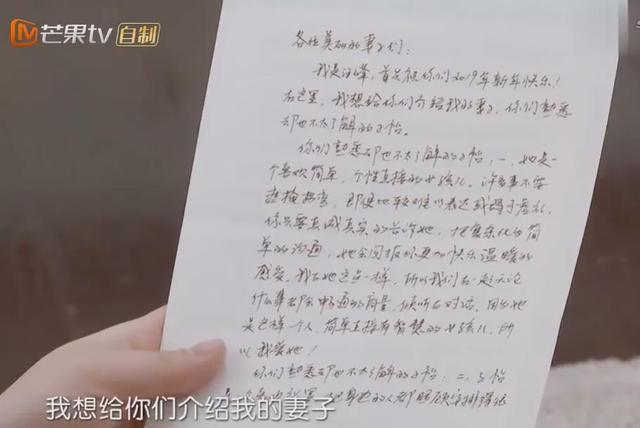 芒果tv 自制
各位美丽的妻子们：
我是汪峰，首先祝你们2019年新年快乐！
在这里，我想给你们介绍我的妻子，你们熟悉
却也不太了解的子怡。
你们熟悉却也不太了解的子怡：一、她是一
个喜欢简单，个性直接的女孩儿。许多事不要
遮掩拐弯，即便比较难以表达或碍于虚礼，
你只要真诚真实的告诉她，把复杂化为简
单的沟通，她会回报你更加快乐温暖的
感受。我和她这点一样，所以我们在一起无论
什么事都会畅通的商量，倾听与对话。因为她
是这样一个人，简单直接有智慧的女孩儿，所
以我爱她！
你们熟悉却也不太了解的子怡：二、子怡
我想给你们介绍我的妻子